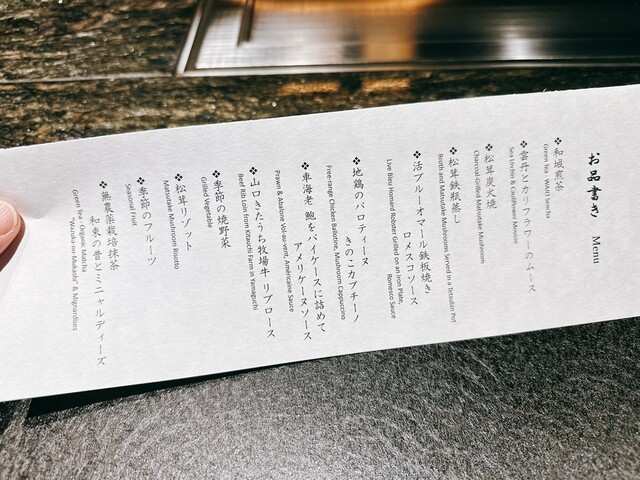 お品書き Menu
❖和城煎茶
Green Tea - WAJO Sencha
❖雲丹とカリフラワーのムース
Sea Urchin & Cauliflower Mousse
❖松茸炭火焼
Charcoal Grilled Matsutake Mushroom
❖松茸鉄瓶蒸し
Broth and Matsutake Mushroom Served in a Tetsubin Pot
❖活ブルーオマール鉄板焼き,
ロメスコソース
Live Bleu Homard Robster Grilled on an Iron Plate,
Romesco Sauce
❖地鶏のバロティーヌ
きのこカプチーノ
Free-range Chicken Ballotine, Mushroom Cappuccino
❖車海老 鮑をパイケースに詰めて
アメリケーヌソース
Prawn & Abalone Vol-au-vent, Américaine Sauce
❖山口きたうち牧場牛 リブロース
Beef Rib Loin from Kitauchi Farm in Yamaguchi
❖季節の焼野菜
Grilled Vegetable
❖松茸リゾット
Matsutake Mushroom Risotto
❖季節のフルーツ
Seasonal Fruit
❖無農薬栽培抹茶
和束の昔とミニャルディーズ
Green Tea - Organic Matcha
"Wazuka no Mukashi" & Mignardises